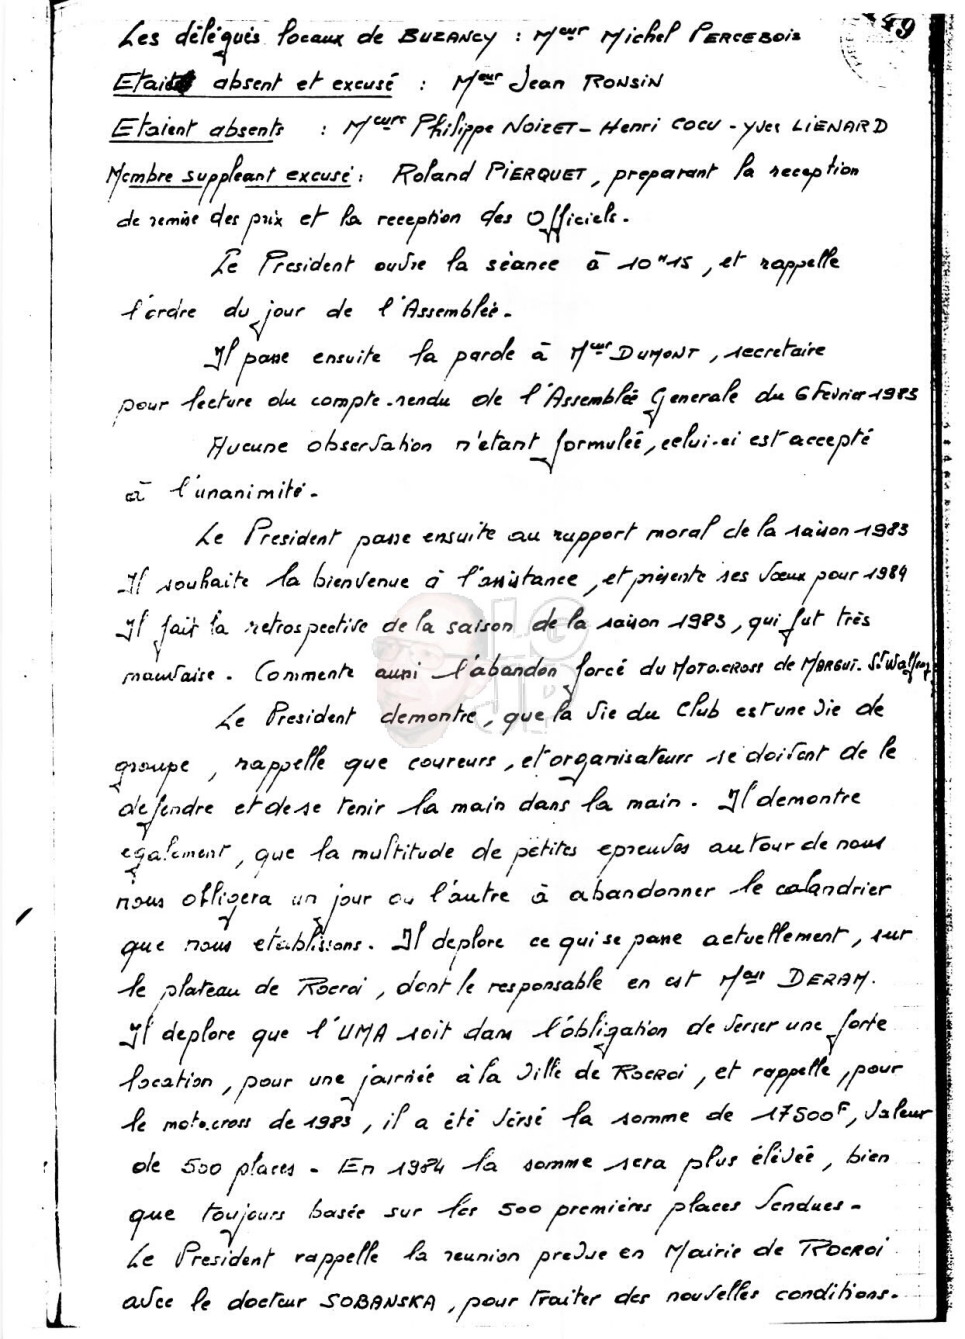 49
Les délégués locaux de BUZANCY : Meur Michel PERCEBOIS
Etait absent et excusé : Meur Jean RONSIN
Etaient absents : Meurs Philippe NOIZET - Henri COCU - Yves LIENARD
Membre suppleant excusé : Roland PIERQUET, preparant la reception
de remise des prix et la reception des Officiels.
Le President ouvre la séance à 10H15, et rappelle
l'ordre du jour de l'Assemblée.
Il passe ensuite la parole à Meur DUMONT, secretaire
pour lecture du compte-rendu de l'Assemblée Generale du 6 Fevrier 1983
Aucune observation n'étant formulée, celui-ci est accepté
à l'unanimité.
Le President passe ensuite au rapport moral de la saison 1983
Il souhaite la bienvenue à l'assistance, et présente ses voeux pour 1984
Il fait la retrospective de la saison de la saison 1983, qui fut très
mauvaise. Commente aussi l'abandon forcé du MOTO.CROSS de MARGUT. St Walfroy
Le President demontre, que la vie du Club est une vie de
groupe, rappelle que coureurs, et organisateurs se doivent de le
defendre et de se tenir la main dans la main. Il demontre
egalement, que la multitude de petites epreuves autour de nous
nous obligera un jour ou l'autre à abandonner le calandrier
que nous etablissons. Il deplore ce qui se passe actuellement, sur
le plateau de Rocroi, dont le responsable en est Meur DERAM.
Il deplore que l'UMA soit dans l'obligation de verser une forte
location, pour une journée à la Ville de ROCROI, et rappelle, pour
le moto.cross de 1983, il a été versé la somme de 17500F, valeur
de 500 places. En 1984 la somme sera plus élevée, bien
que toujours basée sur les 500 premières places vendues.
Le President rappelle la reunion prevue en Mairie de ROCROI
avec le docteur SOBANSKA, pour traiter des nouvelles conditions.
LG
JP